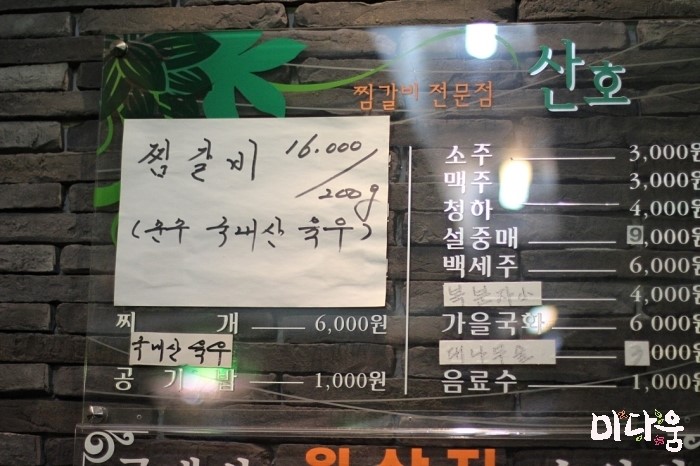 찜갈비 전문점 산호
찜 갈 비 16.000/200g
(순수 국내산 육우)
찌 개 6,000원
국내산 육우
공 기 밥 1,000원
소주 3,000원
맥주 3,000원
청하 4,000원
설중매 9,000원
백세주 6,000원
복분자 4,000원
가을국화 6 000원
000원
음료수 1,000원
미다움